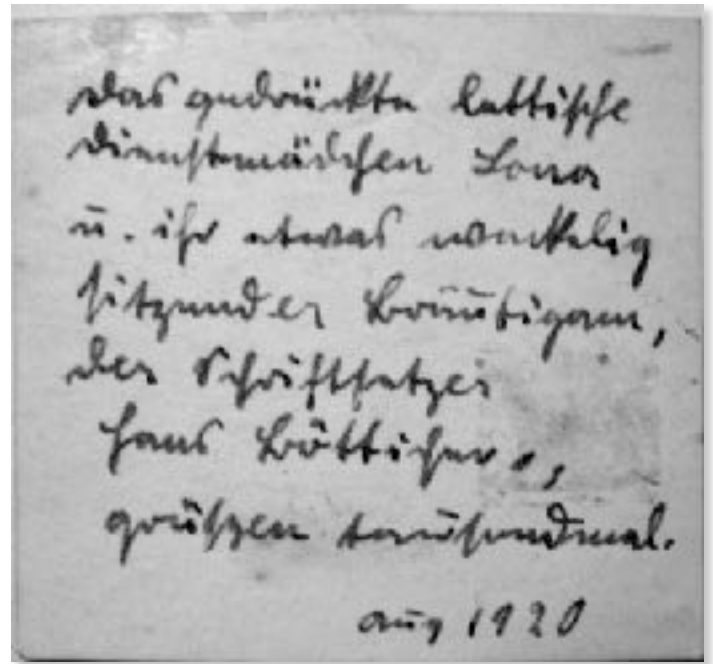 Das gedrückte lettische
Dienstmädchen Lona
u. ihr etwas wackelig
sitzender Bräutigam,
der Schriftsetzer
Hans Bötticher,
grüßen tausendmal.
Aug 1920